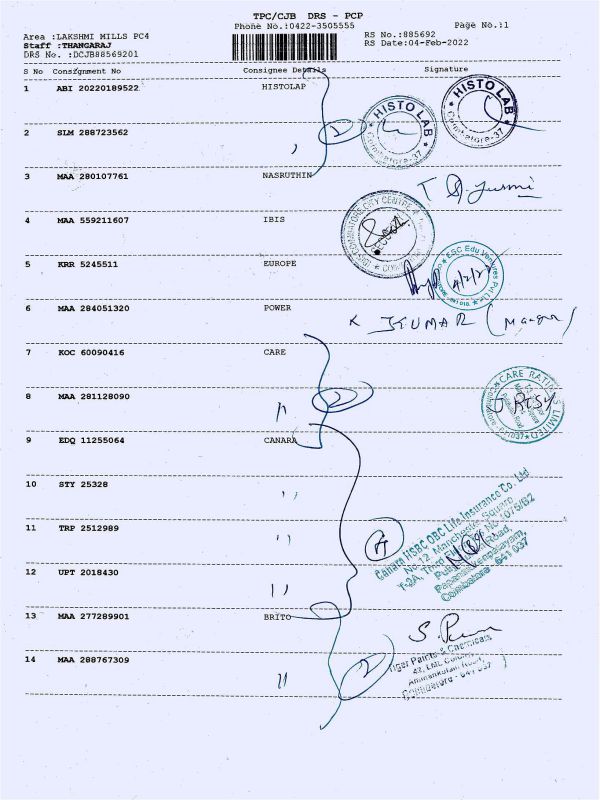 TPC/CJB DRS - PCP
Phone No.:0422-3505555 Page No.:1
Area :LAKSHMI MILLS PC4 RS No.:885692
Staff :THANGARAJ RS Date:04-Feb-2022
DRS No. :DCJB88569201
S No Consignment No Consignee Details Signature
1 ABI 20220189522 HISTOLAP
HISTO LAB
Coimbatore-37
2 SLM 288723562 2
HISTO LAB
Coimbatore-37
3 MAA 280107761 NASRUTHIN
4 MAA 559211607 IBIS
5 KRR 5245511 EUROPE
ESC Edu Ventures Pvt Ltd
6 MAA 284051320 POWER
K KUMAR (Manager)
7 KOC 60090416 CARE
8 MAA 281128090 〃 2
CARE RATINGS LIMITED
9 EDQ 11255064 CANARA
10 STY 25328 〃
11 TRP 2512989 〃
Canara HSBC OBC Life Insurance Co. Ltd
No. 12, Manchester Square
T-2A, Third Floor
Road,
Papanaickenpalayam,
Coimbatore 641 037
12 UPT 2018430 〃
13 MAA 277289901 BRITO
14 MAA 288767309 〃 2
Tiger Paints & Chemicals
Coimbatore - 641 037